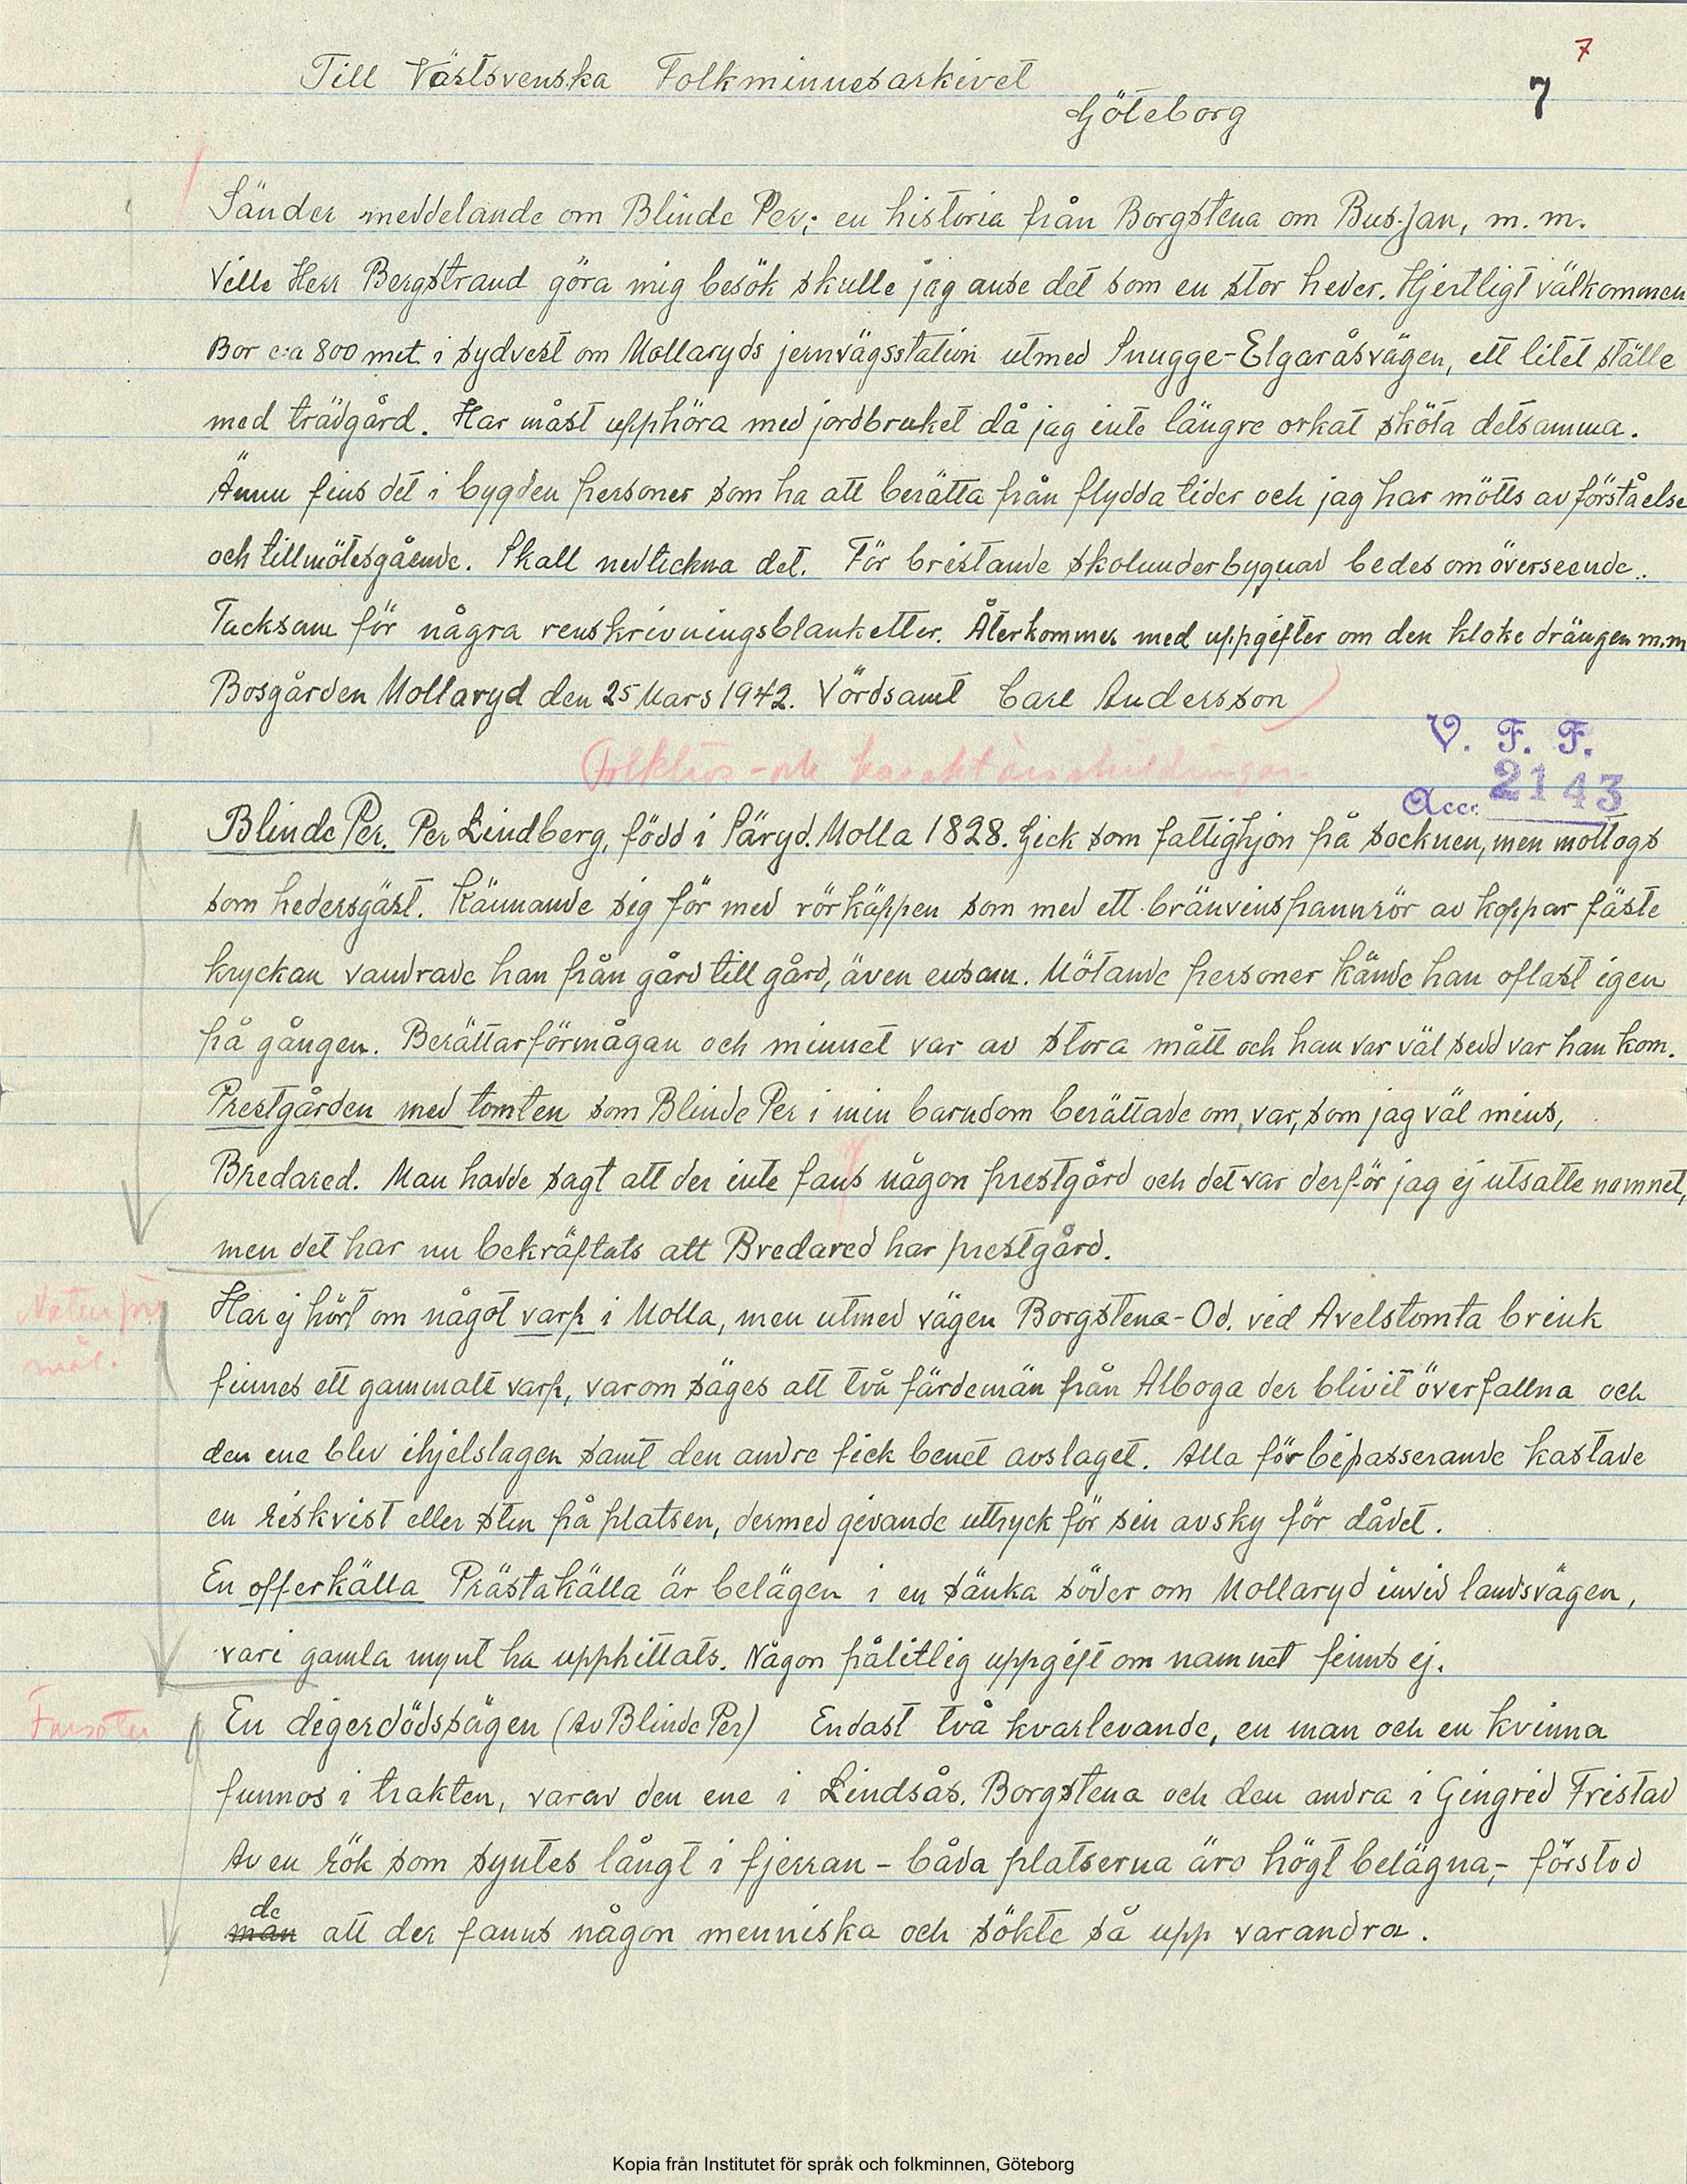 7
Till Västsvenska Folkminnesarkivet
7
Göteborg
Sänder meddelande om Blinde Per; en historia från Borgstena om Bus-Jan, m. m.
Ville Herr Bergstrand göra mig besök skulle jag anse det som en stor heder. Hjertligt välkommen
Bor c:a 800 met. i sydvest om Mollaryds jernvägsstation utmed Snugge-Elgaråsvägen, ett litet ställe
med trädgård. Har måst upphöra med jordbruket då jag inte längre orkat sköta detsamma.
Ännu fins det i bygden personer som ha att berätta från flydda tider och jag har mötts av förståelse
och tillmötesgående. Skall nedtickna det. För bristande skolunderbygnad bedes om överseende.
Tacksam för några renskrivningsblanketter. Återkommer med uppgifter om den kloke drängen m.m
Bosgården Mollaryd den 25 Mars 1942. Vördsamt Carl Andersson
V. F. F.
Folklivs- och karaktärsskildringar.
Acc. 2143
Blinde Per. Per Lindberg, född i Säryd. Molla 1828. Gick som fattighjon på socknen, men mottogs
som hedersgäst. Kännande sig för med rörkäppen som med ett bränvinspannrör av koppar fäste
kryckan vandrade han från gård till gård, även ensam. Mötande personer kände han oftast igen
på gången. Berättarförmågan och minnet var av stora mått och han var väl sedd var han kom.
Prestgården med tomten som Blinde Per i min barndom berättade om, var, som jag väl mins,
Bredared. Man hade sagt att der inte fans någon prestgård och det var derför jag ej utsatte namnet,
men det har nu bekräftats att Bredared har prestgård.
Naturföre
mål.
Har ej hört om något varp i Molla, men utmed vägen Borgstena-Od. vid Avelstomta brink
finnes ett gammalt varp, varom säges att två färdemän från Alboga der blivit överfallna och
den ene blev ihjelslagen samt den andre fick benet avslaget. Alla förbipasserande kastade
en riskvist eller sten på platsen, dermed givande uttryck för sin avsky för dådet.
En offerkälla Prästakälla är belägen i en sänka söder om Mollaryd invid landsvägen,
vari gamla mynt ha upphittats. Någon pålitlig uppgift om namnet finns ej.
Farsoter
En digerdödssägen (Av Blinde Per) Endast två kvarlevande, en man och en kvinna
funnos i trakten, varav den ene i Lindsås. Borgstena och den andra i Gingrid Fristad
Av en rök som syntes långt i fjerran - båda platserna äro högt belägna,- förstod
de
man att der fanns någon menniska och sökte så upp varandra.
Kopia från Institutet för språk och folkminnen, Göteborg